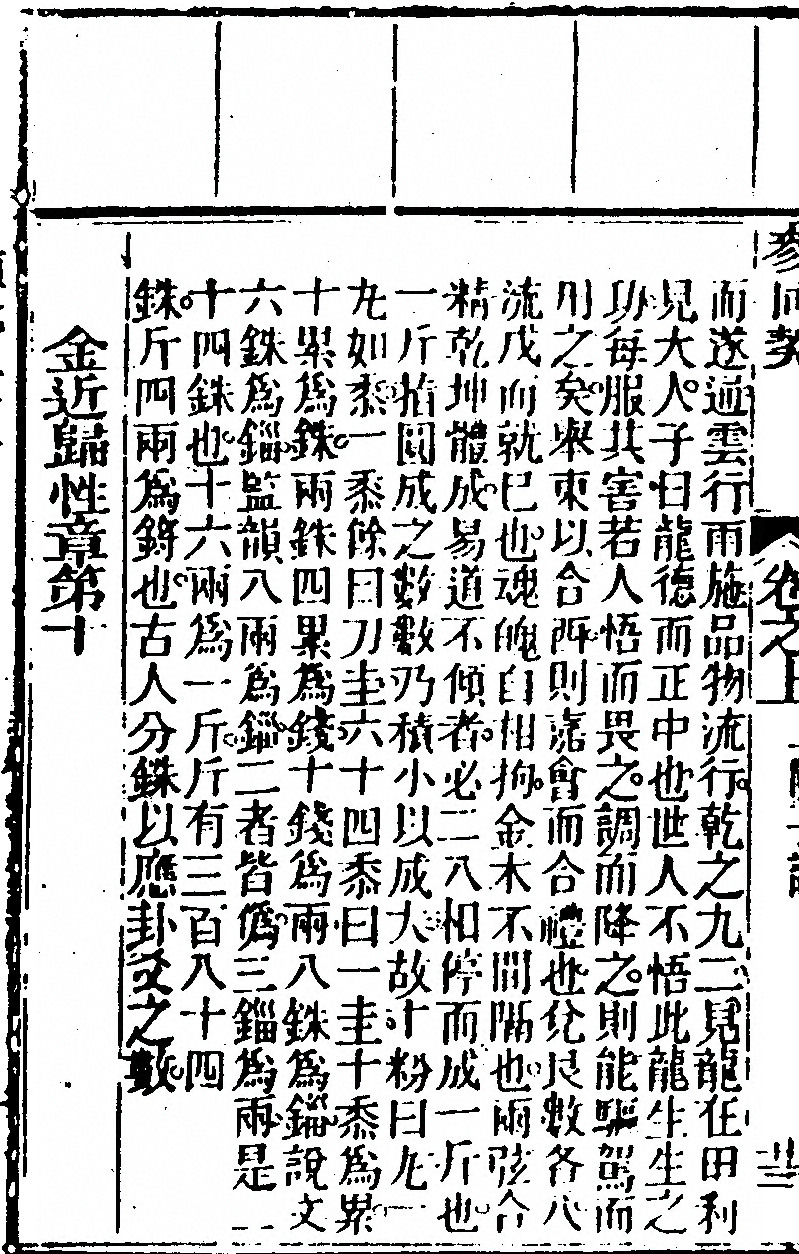 參同契
卷之上
而遂通雲行雨施品物流行乾之九二見龍在田利
見大人子曰龍德而正中也世人不悟此龍生生之
功每服其害若人悟而畏之調而降之則能驅駕而
用之矣舉東以合西則嘉會而合禮也兌艮數各八
流戊而就巳也魂魄自相拘金木不間隔也兩弦合
精乾坤體成易道不傾者必二八相停而成一斤也
一斤指圓成之數數乃積小以成大故十粉曰丸一
丸如黍一黍餘曰刀圭六十四黍曰一圭十黍爲累
十累爲銖兩銖四累爲錢十錢爲兩八銖爲錙說文
六銖爲錙監韻八兩爲錙二者皆僞三錙爲兩是二
十四銖也十六兩爲一斤斤有三百八十四
銖斤四兩爲鋝也古人分銖以應卦爻之數
金近歸性章第十